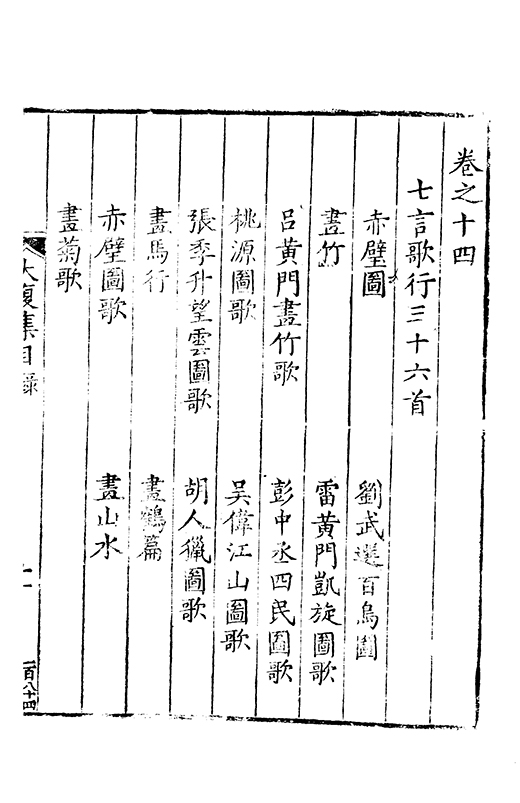 卷之十四
七言歌行三十六首
赤壁圖
劉武選百鳥圖
畫竹
雷黃門凱旋圖歌
呂黃門畫竹歌
彭中丞四民圖歌
桃源圖歌
吳偉江山圖歌
張季升望雲圖歌
胡人獵圖歌
畫馬行
畫鶴篇
赤壁圖歌
畫山水
畫菊歌
大復集目錄
一百八十四